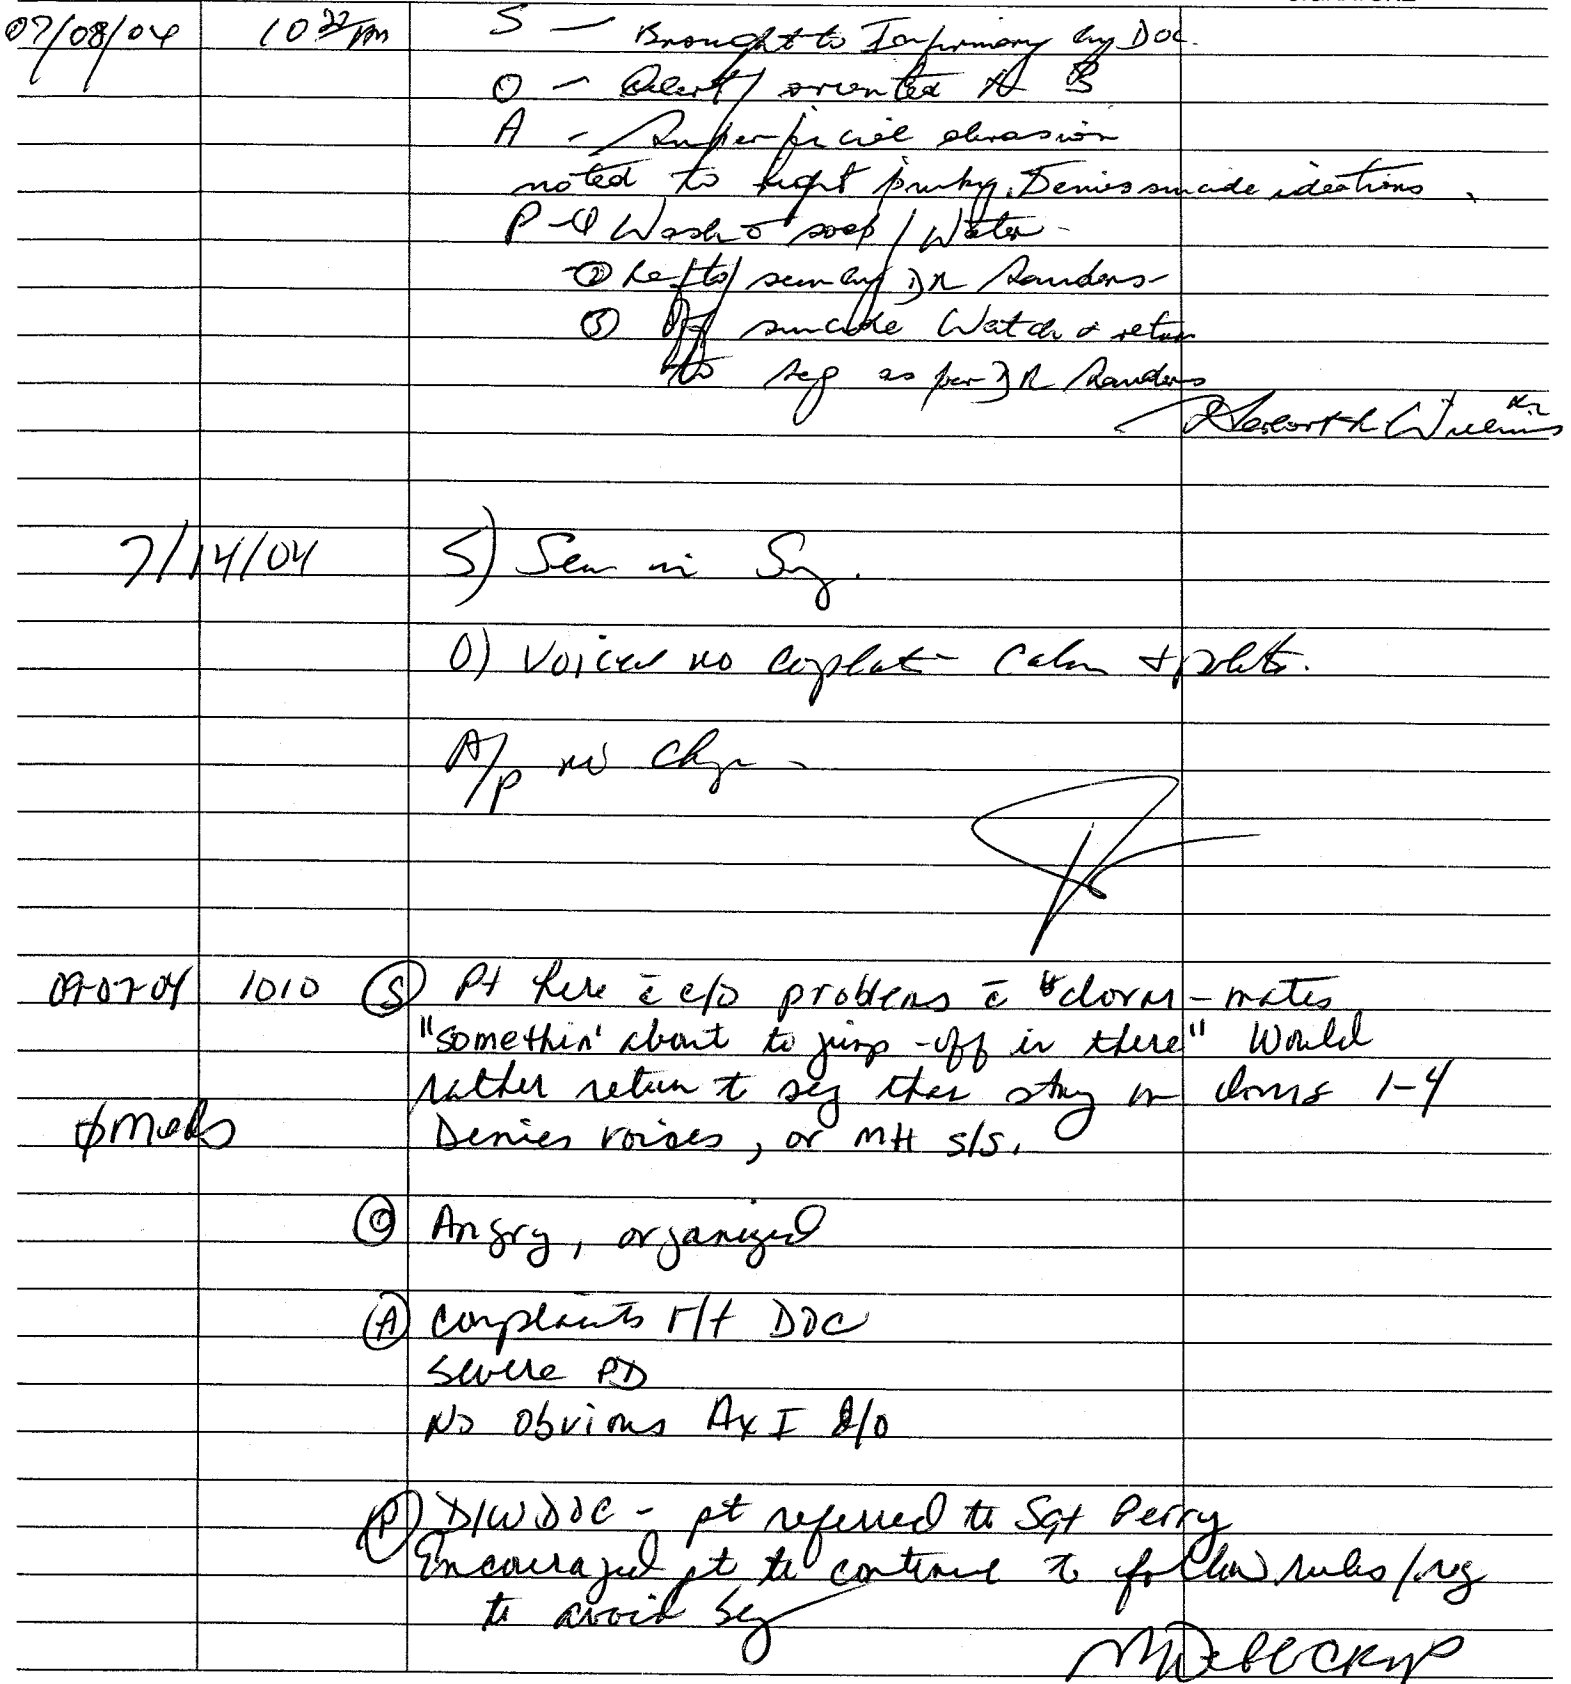 07/08/04 10 22 pm S — Brought to Infirmary by DOC.
O — Alert/oriented X 3
A - Superficial abrasion
noted to right pinky. Denies suicide ideations.
P - ① Wash c̄ soap / Water -
② seen by DR Sanders -
③ Off suicide Watch & return
to seg as per DR Sanders
7/14/04 S) Seen in Seg.
O) Voiced no complaint calm + polite.
A/p no change -
09-07-04 1010 Ⓢ Pt here c̄ c/o problems c̄ dorm-mates
"somethin' about to jump-off in there" Would
rather return to seg than stay in dorms 1-4
ϕ meds Denies voices, or MH s/s.
Ⓞ Angry, organized
Ⓐ complaints r/t DOC
severe PD
No obvious Ax I d/o
Ⓟ D/W DOC - pt referred to Sgt Perry
Encouraged pt to continue to follow rules/reg
to avoid seg